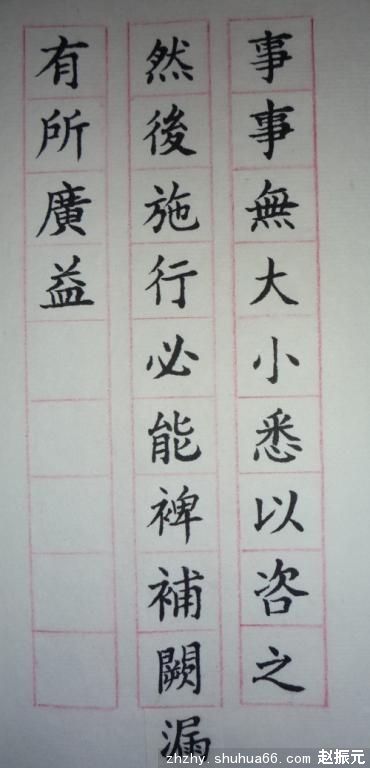 事事無大小悉以咨之
然後施行必能裨補闕漏
有所廣益
zhzhy.shuhua66.com 赵振元